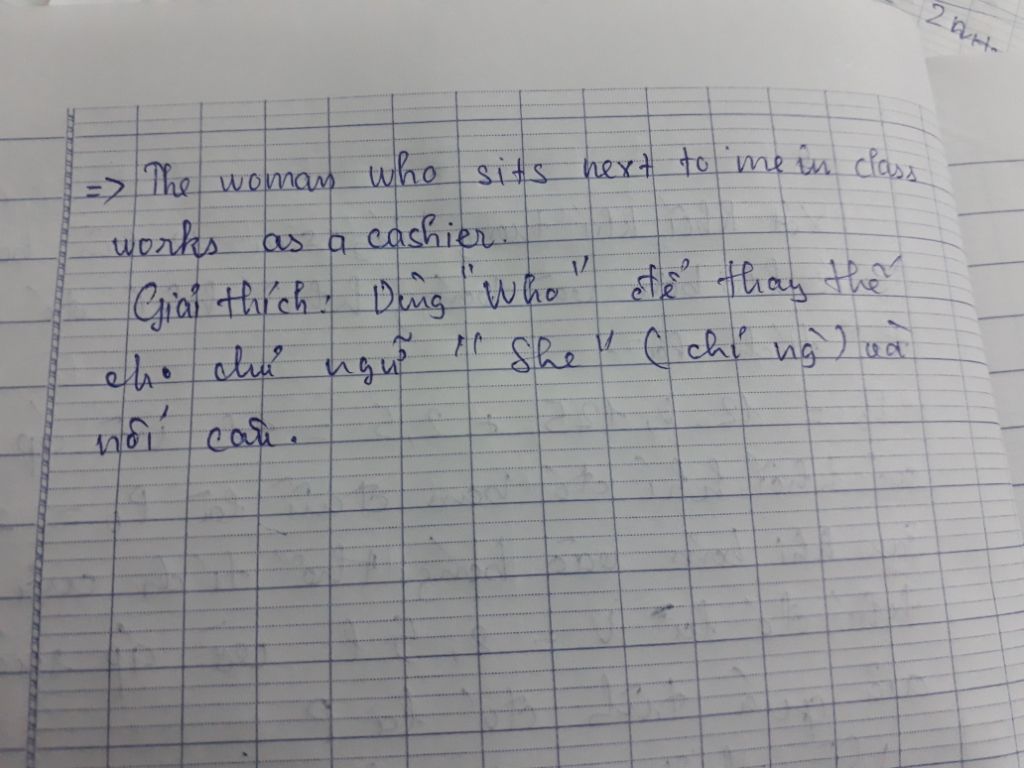 2 n.
=> The woman who sits next to me in class
works as a cashier.
Giải thích: Dùng "Who" để thay thế
cho chủ ngữ "She" (chỉ ng`) và
nối câu.